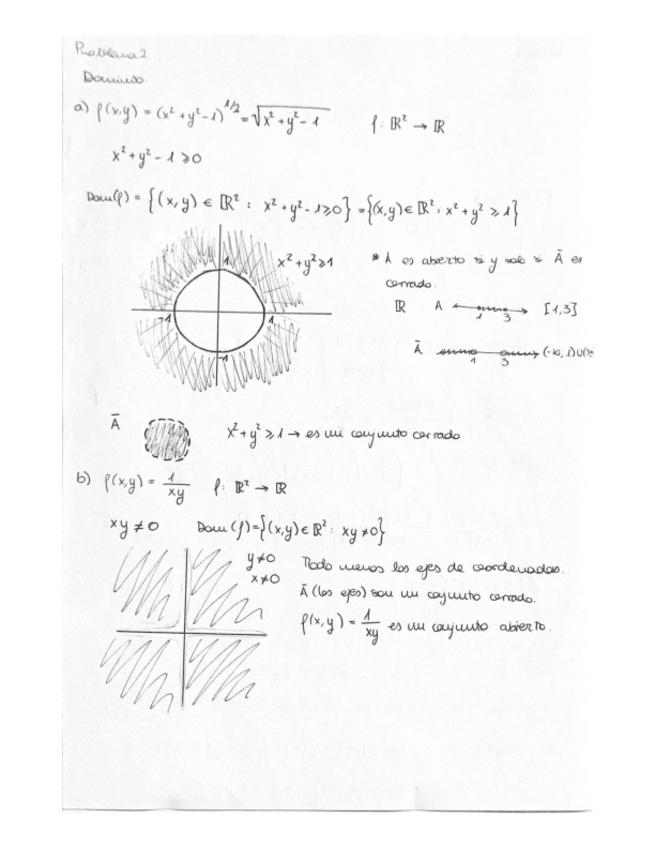 Problema 2
Dominio
a) f(x,y) = (x² + y² - 1)^1/2 = √x² + y² - 1    f: ℝ² → ℝ
x² + y² - 1 ≥ 0
Dom(f) = {(x,y) ∈ ℝ² : x² + y² - 1 ≥ 0} = {(x,y) ∈ ℝ² : x² + y² ≥ 1}
x² + y² ≥ 1
1
-1
1
-1
* A es abierto si y solo si Ā es
cerrado.
ℝ A 1 3 [1,3]
Ā 1 3 (-∞, 1) ∪ (3
Ā x² + y² ≥ 1 → es un conjunto cerrado
b) f(x,y) = 1/xy    f: ℝ² → ℝ
xy ≠ 0    Dom(f) = {(x,y) ∈ ℝ² : xy ≠ 0}
y ≠ 0
x ≠ 0
Todo menos los ejes de coordenadas.
Ā (los ejes) son un conjunto cerrado.
f(x,y) = 1/xy es un conjunto abierto.